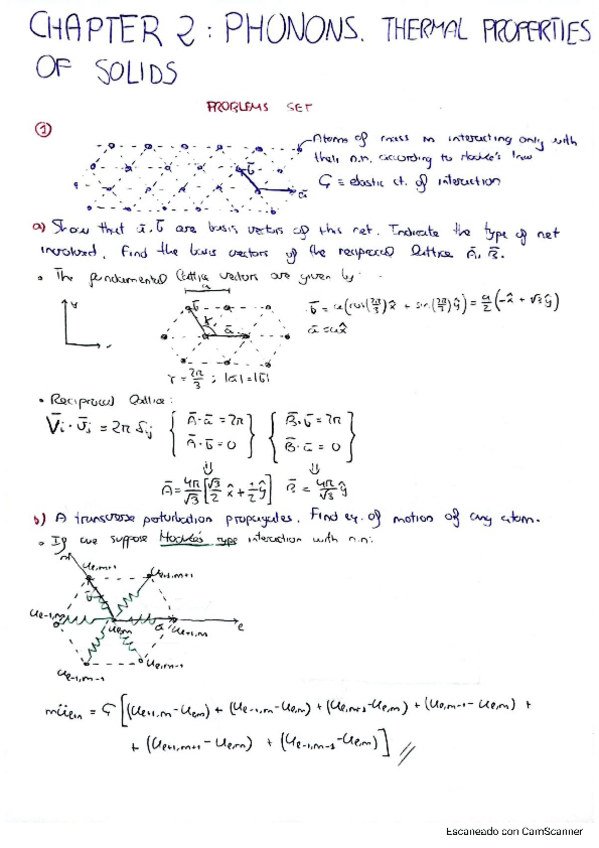 CHAPTER 2: PHONONS. THERMAL PROPERTIES
OF SOLIDS
PROBLEMS SET
①
Atoms of mass m interacting only with
their n.n. according to Hooke's law
G ≡ elastic ct. of interaction
b̄
ā
a) Show that ā, b̄ are basis vectors of this net. Indicate the type of net
involved. Find the basis vectors of the reciprocal lattice Ā, B̄.
• The fundamental lattice vectors are given by:
a
y
b̄
γ
ā
b̄ = a(cos(2π/3)x̂ + sin(2π/3)ŷ) = a/2(-x̂ + √3ŷ)
ā = ax̂
γ = 2π/3 ; |ā| = |b̄|
• Reciprocal lattice:
V̄i · Ūj = 2π δij { Ā·ā = 2π { B̄·b̄ = 2π
Ā·b̄ = 0 } B̄·ā = 0 }
⇓ ⇓
Ā = 4π/√3 [√3/2 x̂ + 1/2 ŷ] B̄ = 4π/√3 ŷ
b) A transverse perturbation propagates. Find eq. of motion of any atom.
• If we suppose Hooke's type interaction with n.n:
m
uℓ,m+1
uℓ+1,m+1
b̄
uℓ-1,m
uℓ,m
ā
uℓ+1,m
ℓ
uℓ-1,m-1
uℓ,m-1
müℓm = G[(uℓ+1,m - uℓm) + (uℓ-1,m - uℓ,m) + (uℓ,m+1 - uℓ,m) + (uℓ,m-1 - uℓ,m) +
+ (uℓ+1,m+1 - uℓ,m) + (uℓ-1,m-1 - uℓ,m)] //
Escaneado con CamScanner